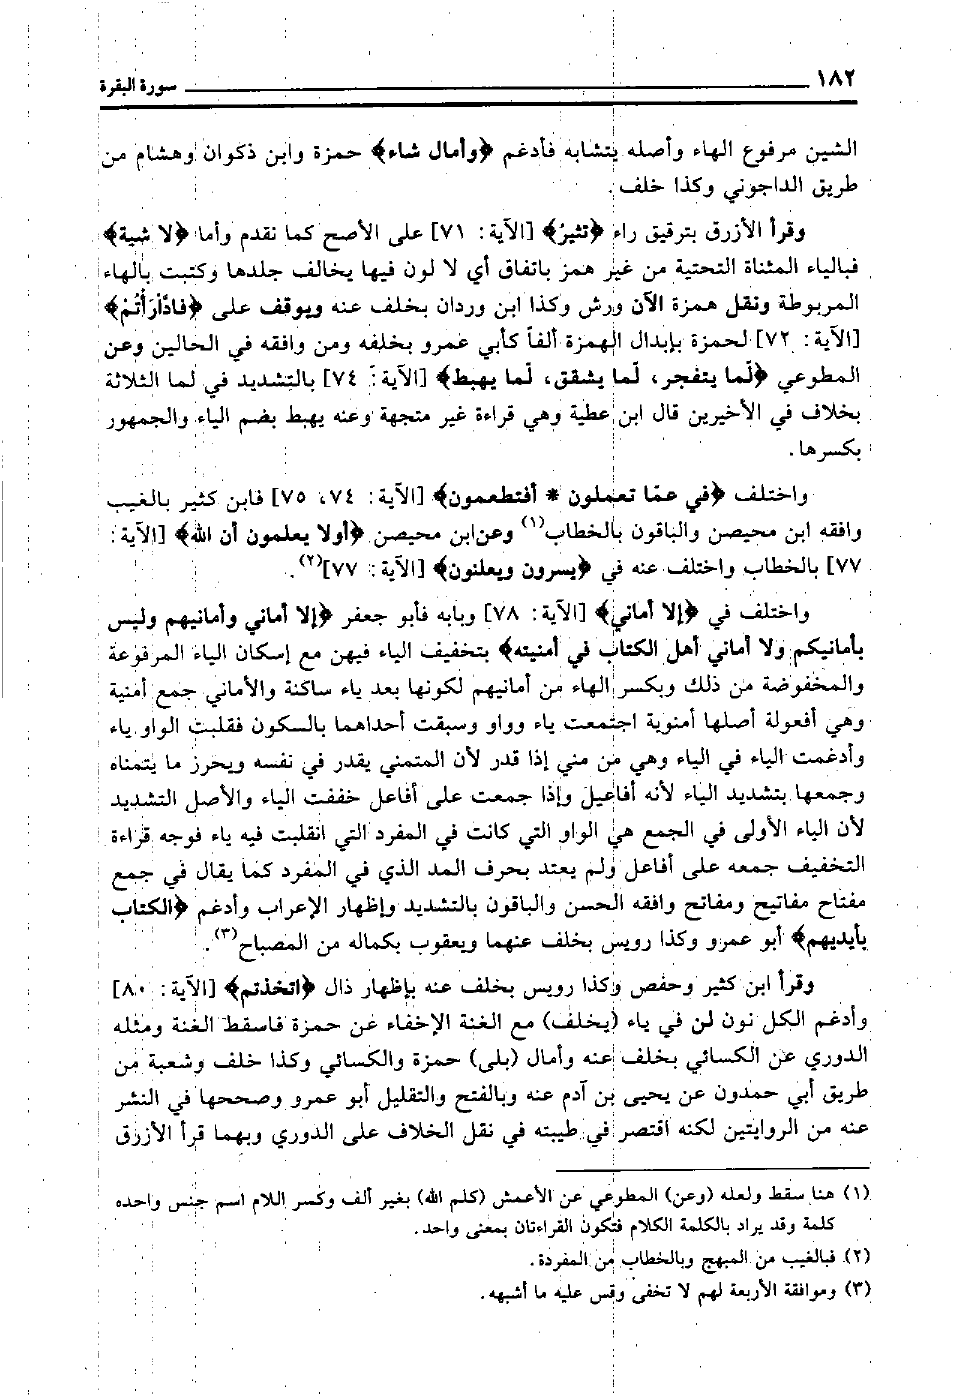 ١٨٢
سورة البقرة
الشين مرفوع الهاء وأصله يتشابه فأدغم ﴿وأمال شاء﴾ حمزة وابن ذكوان وهشام من
طريق الداجوني وكذا خلف.
وقرأ الأزرق بترقيق راء ﴿تثيرُ﴾ [الآية: ٧١] على الأصح كما نقدم وأما ﴿لا شية﴾
فبالياء المثناة التحتية من غير همز باتفاق أي لا لون فيها يخالف جلدها وكتبت بالهاء
المربوطة ونقل همزة الآن ورش وكذا ابن وردان بخلف عنه ويوقف على ﴿فادّارَأتُم﴾
[الآية: ٧٢] لحمزة بإبدال الهمزة ألفاً كأبي عمرو بخلفه ومن وافقه في الحالين وعن
المطوعي ﴿لّما يتفجر، لّما يشقق، لّما يهبط﴾ [الآية: ٧٤] بالتشديد في لما الثلاثة
بخلاف في الأخيرين قال ابن عطية وهي قراءة غير متجهة وعنه يهبط بضم الياء والجمهور
بكسرها.
واختلف ﴿في عمّا تعملون * أفتطعمون﴾ [الآية: ٧٤، ٧٥] فابن كثير بالغيب
وافقه ابن محيصن والباقون بالخطاب(١) وعن ابن محيصن ﴿أولا يعلمون أن الله﴾ [الآية:
٧٧] بالخطاب واختلف عنه في ﴿يسرون ويعلنون﴾ [الآية: ٧٧](٢).
واختلف في ﴿إلا أماني﴾ [الآية: ٧٨] وبابه فأبو جعفر ﴿إلا أماني وأمانيهم وليس
بأمانيكم ولا أماني أهل الكتاب في أمنيته﴾ بتخفيف الياء فيهن مع إسكان الياء المرفوعة
والمخفوضة من ذلك وبكسر الهاء من أمانيهم لكونها بعد ياء ساكنة والأماني جمع أمنية
وهي أفعولة أصلها أمنوية اجتمعت ياء وواو وسبقت أحداهما بالسكون فقلبت الواو ياء
وأدغمت الياء في الياء وهي من مني إذا قدر لأن المتمني يقدر في نفسه ويحرز ما يتمناه
وجمعها بتشديد الياء لأنه أفاعيل وإذا جمعت على أفاعل خففت الياء والأصل التشديد
لأن الياء الأولى في الجمع هي الواو التي كانت في المفرد التي انقلبت فيه ياء فوجه قراءة
التخفيف جمعه على أفاعل ولم يعتد بحرف المد الذي في المفرد كما يقال في جمع
مفتاح مفاتيح ومفاتح وافقه الحسن والباقون بالتشديد وإظهار الإعراب وأدغم ﴿الكتاب
بأيديهم﴾ أبو عمرو وكذا رويس بخلف عنهما ويعقوب بكماله من المصباح(٣).
وقرأ ابن كثير وحفص وكذا رويس بخلف عنه بإظهار ذال ﴿اتخذتم﴾ [الآية: ٨٠]
وأدغم الكل نون لن في ياء (يخلف) مع الغنة الإخفاء عن حمزة فاسقط الغنة ومثله
الدوري عن الكسائي بخلف عنه وأمال (بلى) حمزة والكسائي وكذا خلف وشعبة من
طريق أبي حمدون عن يحيى بن آدم عنه وبالفتح والتقليل أبو عمرو وصححها في النشر
عنه من الروايتين لكنه اقتصر في طيبته في نقل الخلاف على الدوري وبهما قرأ الأزرق
(١) هنا سقط ولعله (وعن) المطوعي عن الأعمش (كلم الله) بغير ألف وكسر اللام اسم جنس واحده
كلمة وقد يراد بالكلمة الكلام فتكون القراءتان بمعنى واحد.
(٢) فبالغيب من المبهج وبالخطاب من المفردة.
(٣) وموافقة الأربعة لهم لا تخفى وقس عليه ما أشبهه.